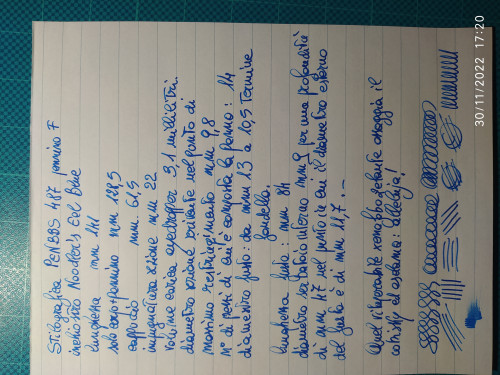 Stilografica PENBBS 487 pennino F
inchiostro Noodler's Eel Blue
lunghezza mm 141
solo corpo+pennino mm 128,5
cappuccio mm. 61,5
impugnatura sezione mm 22
volume carica eyedropper 3,1 millilitri.
diametro sezione svitate nel punto di
massimo restringimento mm 9,8
N° di pezzi di cui è composta la penna: 14
diametro fusto: da mm 13 a 10,5 termine
fondello.
lunghezza fusto: mm 84
diametro serbatoio interno mm 9 per una profondità
di mm 47 nel punto in cui il diametro esterno
del fusto è di mm 11,7 .-
Quel vituperabile xenofobo zelante assaggia il
whisky ed esclama: alleluja!
30/11/2022 17:20